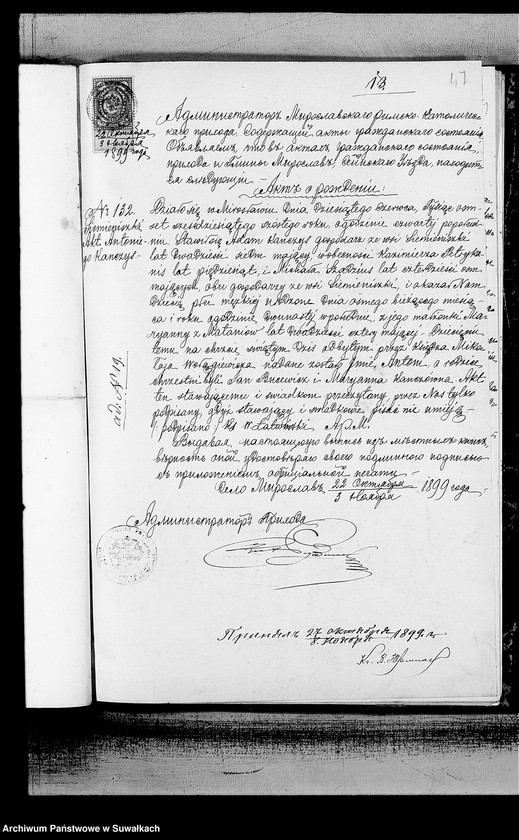 13.
47
22 Октября
3 Ноября
1899 года
Администраторъ Мирославскаго Римско-Католичес-
каго прихода, Содержащій акты гражданскаго состоянія
Объявляетъ, что въ актахъ гражданскаго состоянія,
прихода и Гмины Мирославъ, Сейнскаго Уѣзда, находит-
ся слѣдующій
Актъ о рожденіи:
№ 132.
Siemieniszki
Akt Antonie-
go Kanczys-
ad. № 19.
Działo się w Mirosławiu Dnia Dziesiątego Czerwca, Tysiąc osm-
set sześdziesiątego szóstego roku, o godzinie czwarty popołud-
niu. Stawił się Adam Kanczys gospodarz ze wsi Siemieniszki
lat Dwadzieścia siedm mający, w obecności Kazimierza
lat pięćdziesiąt, i Michała Szadzius lat czterdzieści osm
mających, obu gospodarzy ze wsi Siemieniszki, i okazał Nam
Dziecię płci męzkiej urodzone Dnia osmego bieżącego miesią-
ca i roku o godzinie Dwunasty w południe, z jego małżonki Ma-
ryanny z Mataniów lat Dwadzieścia cztery mający. Dziecięciu
temu na chrzcie świętym Dziś odbytym przez księdza Miko-
łaja nadane zostało Imie Antoni, a rodzice
chrzestni byli Jan i Maryanna Kanczówna. Akt
ten stawającemu i świadkom przeczytany, przez Nas tylko
podpisany, gdyż stawający i świadkowie pisać nie umieją.
podpisano Ks. W. A.P.M.
Выдавая настоящую выпись изъ мѣстныхъ книгъ,
вѣрность оной удостовѣряю своею подлинною подписью
съ приложеніемъ оффиціальной печати.
Село Мирославъ, 22 Октября 1899 года.
3 Ноября
Администраторъ Прихода
Принялъ 27 октября 1899 г.
8 Ноября
Archiwum Państwowe w Suwałkach